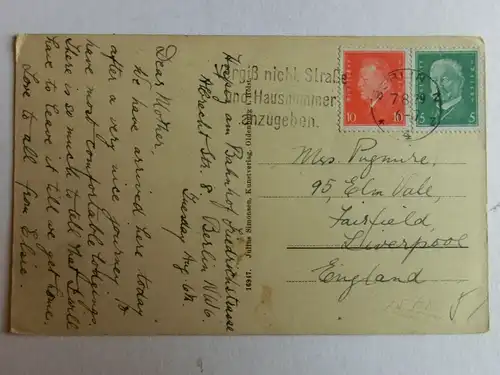 Hospiz am Bahnhof Friedrichstrasse
Albrecht-Str. 8 Berlin NW6.
Tuesday Aug 6th.
Dear Mother,
We have arrived here today
after a very nice journey &
have most comfortable lodgings.
There is so much to tell that I will
have to leave it till we get home.
Love to all from Elsie.
14911.
Julius Simonsen, Kunstverlag, Oldenburg
ergiß nicht, Straße
und Hausnummer
anzugeben.
BERLIN
7.8.29
10
10
5
5
Mrs. Pugmire,
95, Elm Vale,
Fairfield,
Liverpool
England